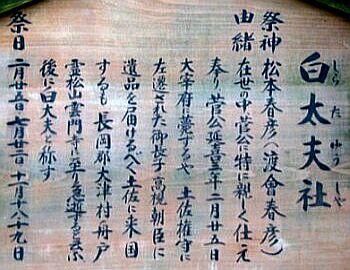 白太夫社
しらたゆうしや
祭神 松本春彦(渡會春彦)
由緒 在世の中菅公に特に親しく仕え
奉り菅公延喜三年二月廿五日
大宰府に薨ずるや土佐権守に
左遷された御長子高視朝臣に
遺品を届けるべく土佐に来国
するも長岡郡大津村舟戸
霊松山雲門寺に至り急逝する
後に白太夫と称す
祭日 二月廿五日 七月廿五日 十二月十八・十九日